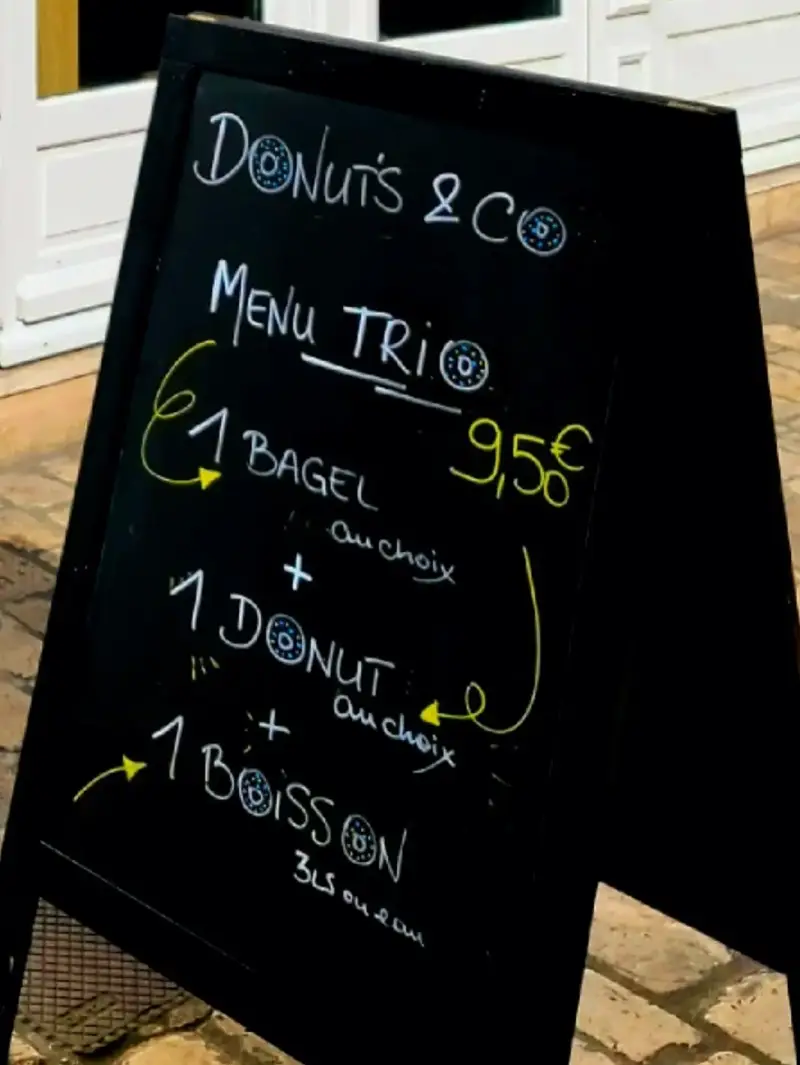 DONUT'S & CO
MENU TRIO
9,50€
1 BAGEL
au choix
+
1 DONUT
au choix
+
1 BOISSON
ou eau